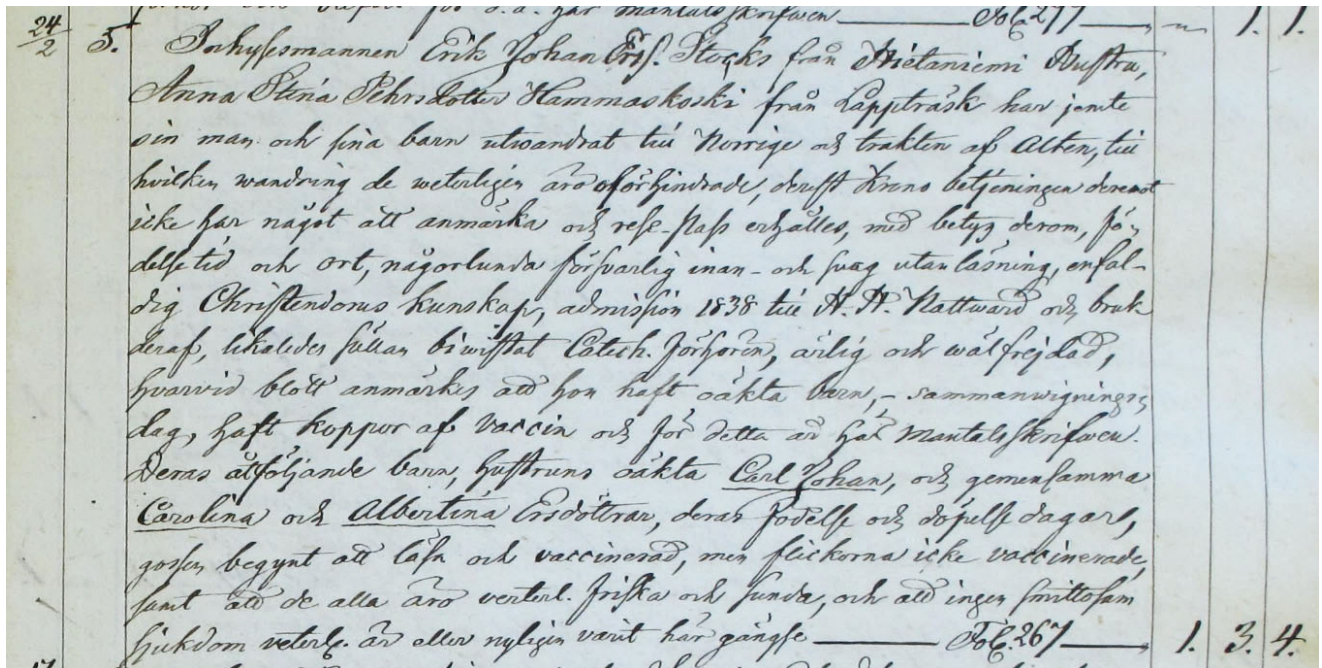 här mantalsskrifwen Fol. 277 1. 1.
24/2 3. Inhysesmannen Erik Johan Ers. Stocks från Hietaniemi Hustru,
Anna Stina Pehrsdotter Hammaskoski från Lappträsk har jemte
sin man och sina barn utwandrat till Norrige och trakten af Alten, till
hvilken wandring de weterligen äro oförhindrade, derest Krono betjeningen deremot
icke har något att anmärka och rese-Pass erhålles, med betyg derom, fö-
delse tid och ort, någorlunda försvarlig inan- och svag utanläsning, enfal-
dig Christendoms kunskap, admission 1838 till H. H. Nattward och bruk
deraf, likaledes sällan biwistat Catech. förhören, ärlig och wälfrejdad,
hvarvid blott anmärkes att hon haft oäkta barn, - sammanwignings-
dag, haft koppor af vaccin och för detta år här Mantalsskrifwen.
Deras åtföljande barn, hustruns oäkta Carl Johan, och gemensamma
Carolina och Albertina Ersdöttrar, deras födelse och döpelse dagar,
gossen begynt att läsa och vaccinerad, men flickorna icke vaccinerade,
samt att de alla äro veterl. friska och sunda, och att ingen smittosam
sjukdom veterl. är eller nyligen varit här gängse Fol. 267 1. 3. 4.